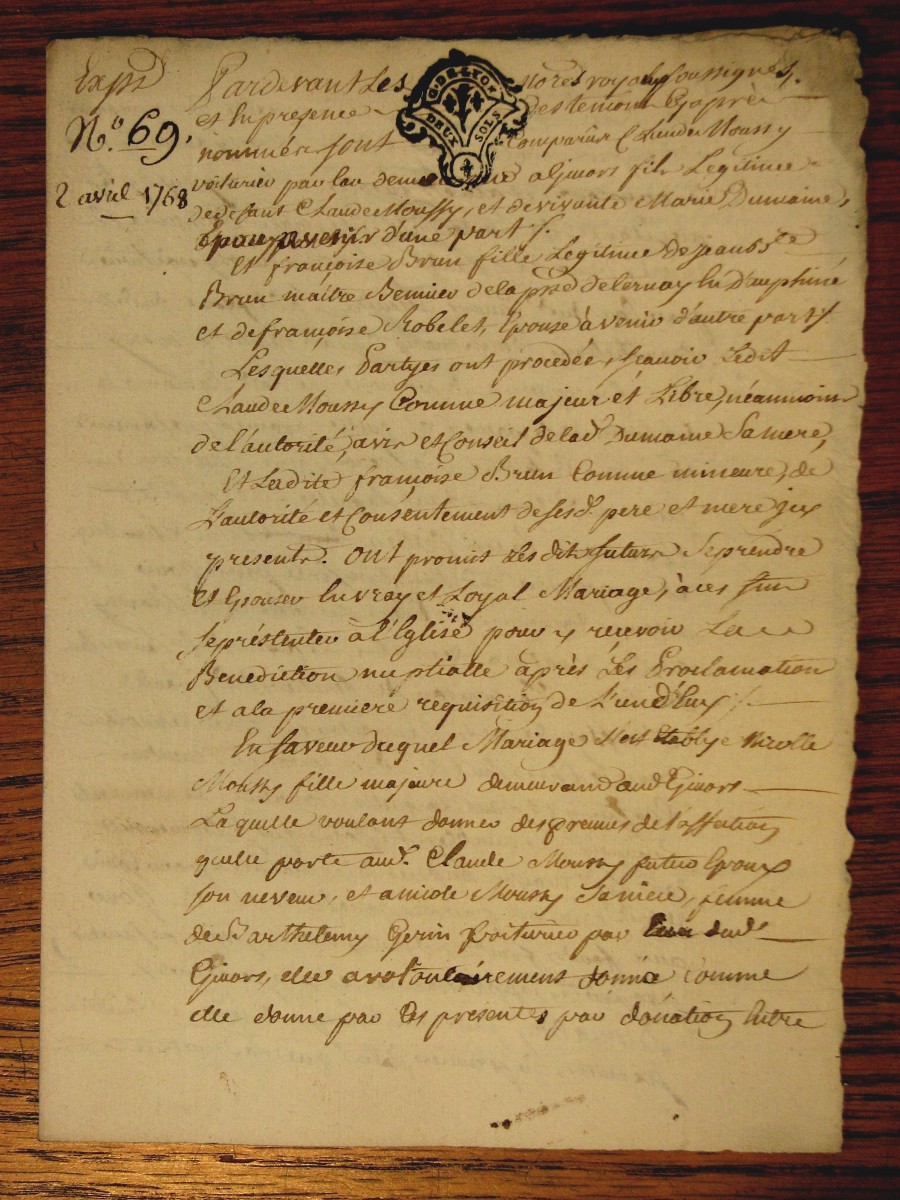 Expéd
N.o 69.
2 avril 1768
G. DE LYON
DEUX SOLS
Pardevant Les nores royaux soussignés,
et En presence des temoins Cy après
nommés sont Comparus Claude Moussy
voiturier par Eau demeurant a Givors fils Legitime
de defunt Claude Moussy, et de vivante Marie Dumaine,
Epoux a venir d'une part /.
Et françoise Brun fille Legitime de Jean Bte
Brun maître de la de En Dauphiné
et de françoise Robelet, Epouse à venir d'autre part /.
Lesquelles Partyes ont procedées, sçavoir Ledit
Claude Moussy Comme majeur et Libre, néanmoins
de l'autorité, avis et Conseil de lad. Dumaine Sa mere,
Et Ladite françoise Brun Comme mineure, de
L'autorité et Consentement de sesd. pere et mere icy
presents. Ont promis Les dits futurs Se prendre
et Epouser En vray et Loyal Mariage, à ces fins
se présenter à l'Eglise pour y recevoir La
Benediction nuptialle après Les Proclamation
et a la premiere requisition de L'un d'Eux /.
En faveur duquel Mariage s'est Etablye Nicolle
Moussy fille majeure demeurand aud. Givors
Laquelle voulant donner des preuves de l'affection
qu'elle porte aud. Claude Moussy futur Epoux
son neveu, et a Nicole Moussy Sa niece, femme
de Barthelemy Gerin voiturier par Eau dud.
Givors, elle a volontairement donné Comme
elle donne par Ces presentes par donation Entre